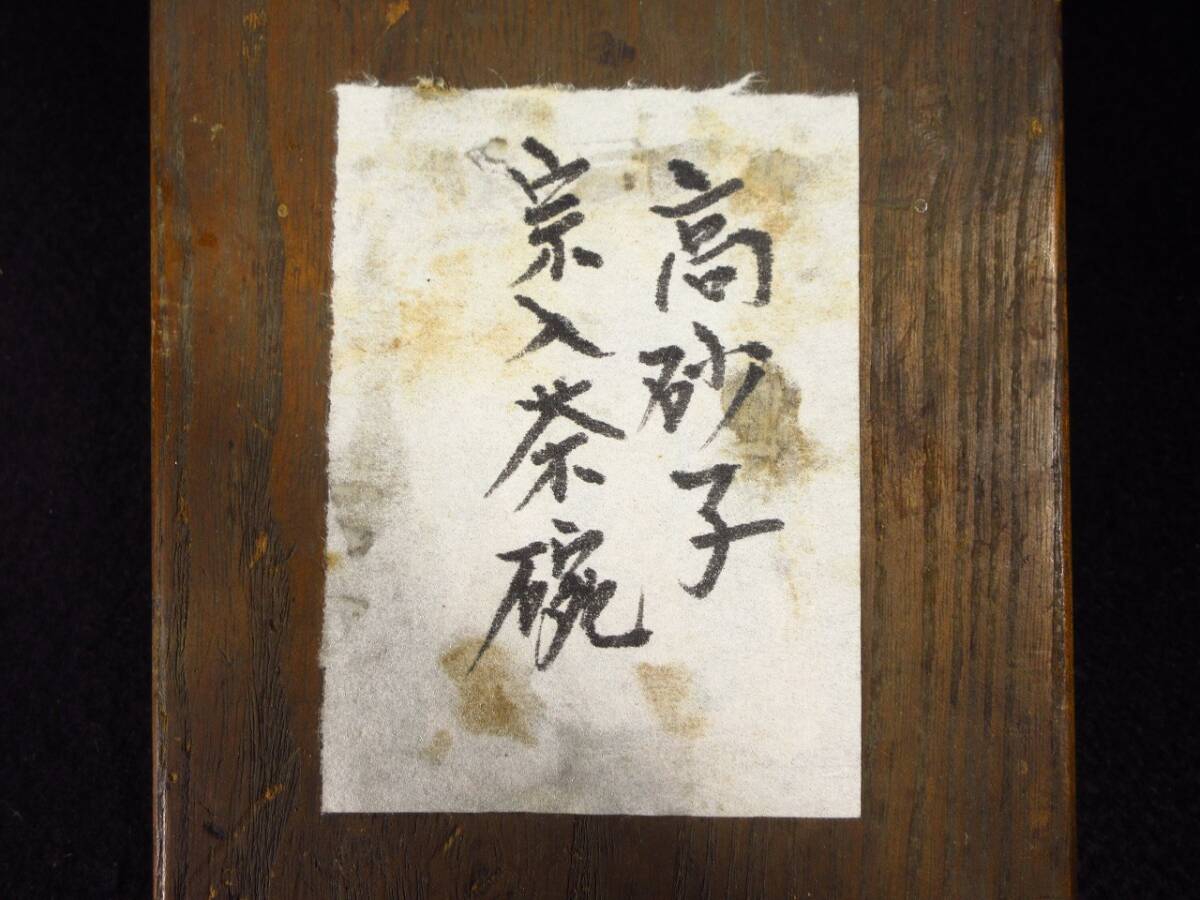 高砂子
宗入茶碗